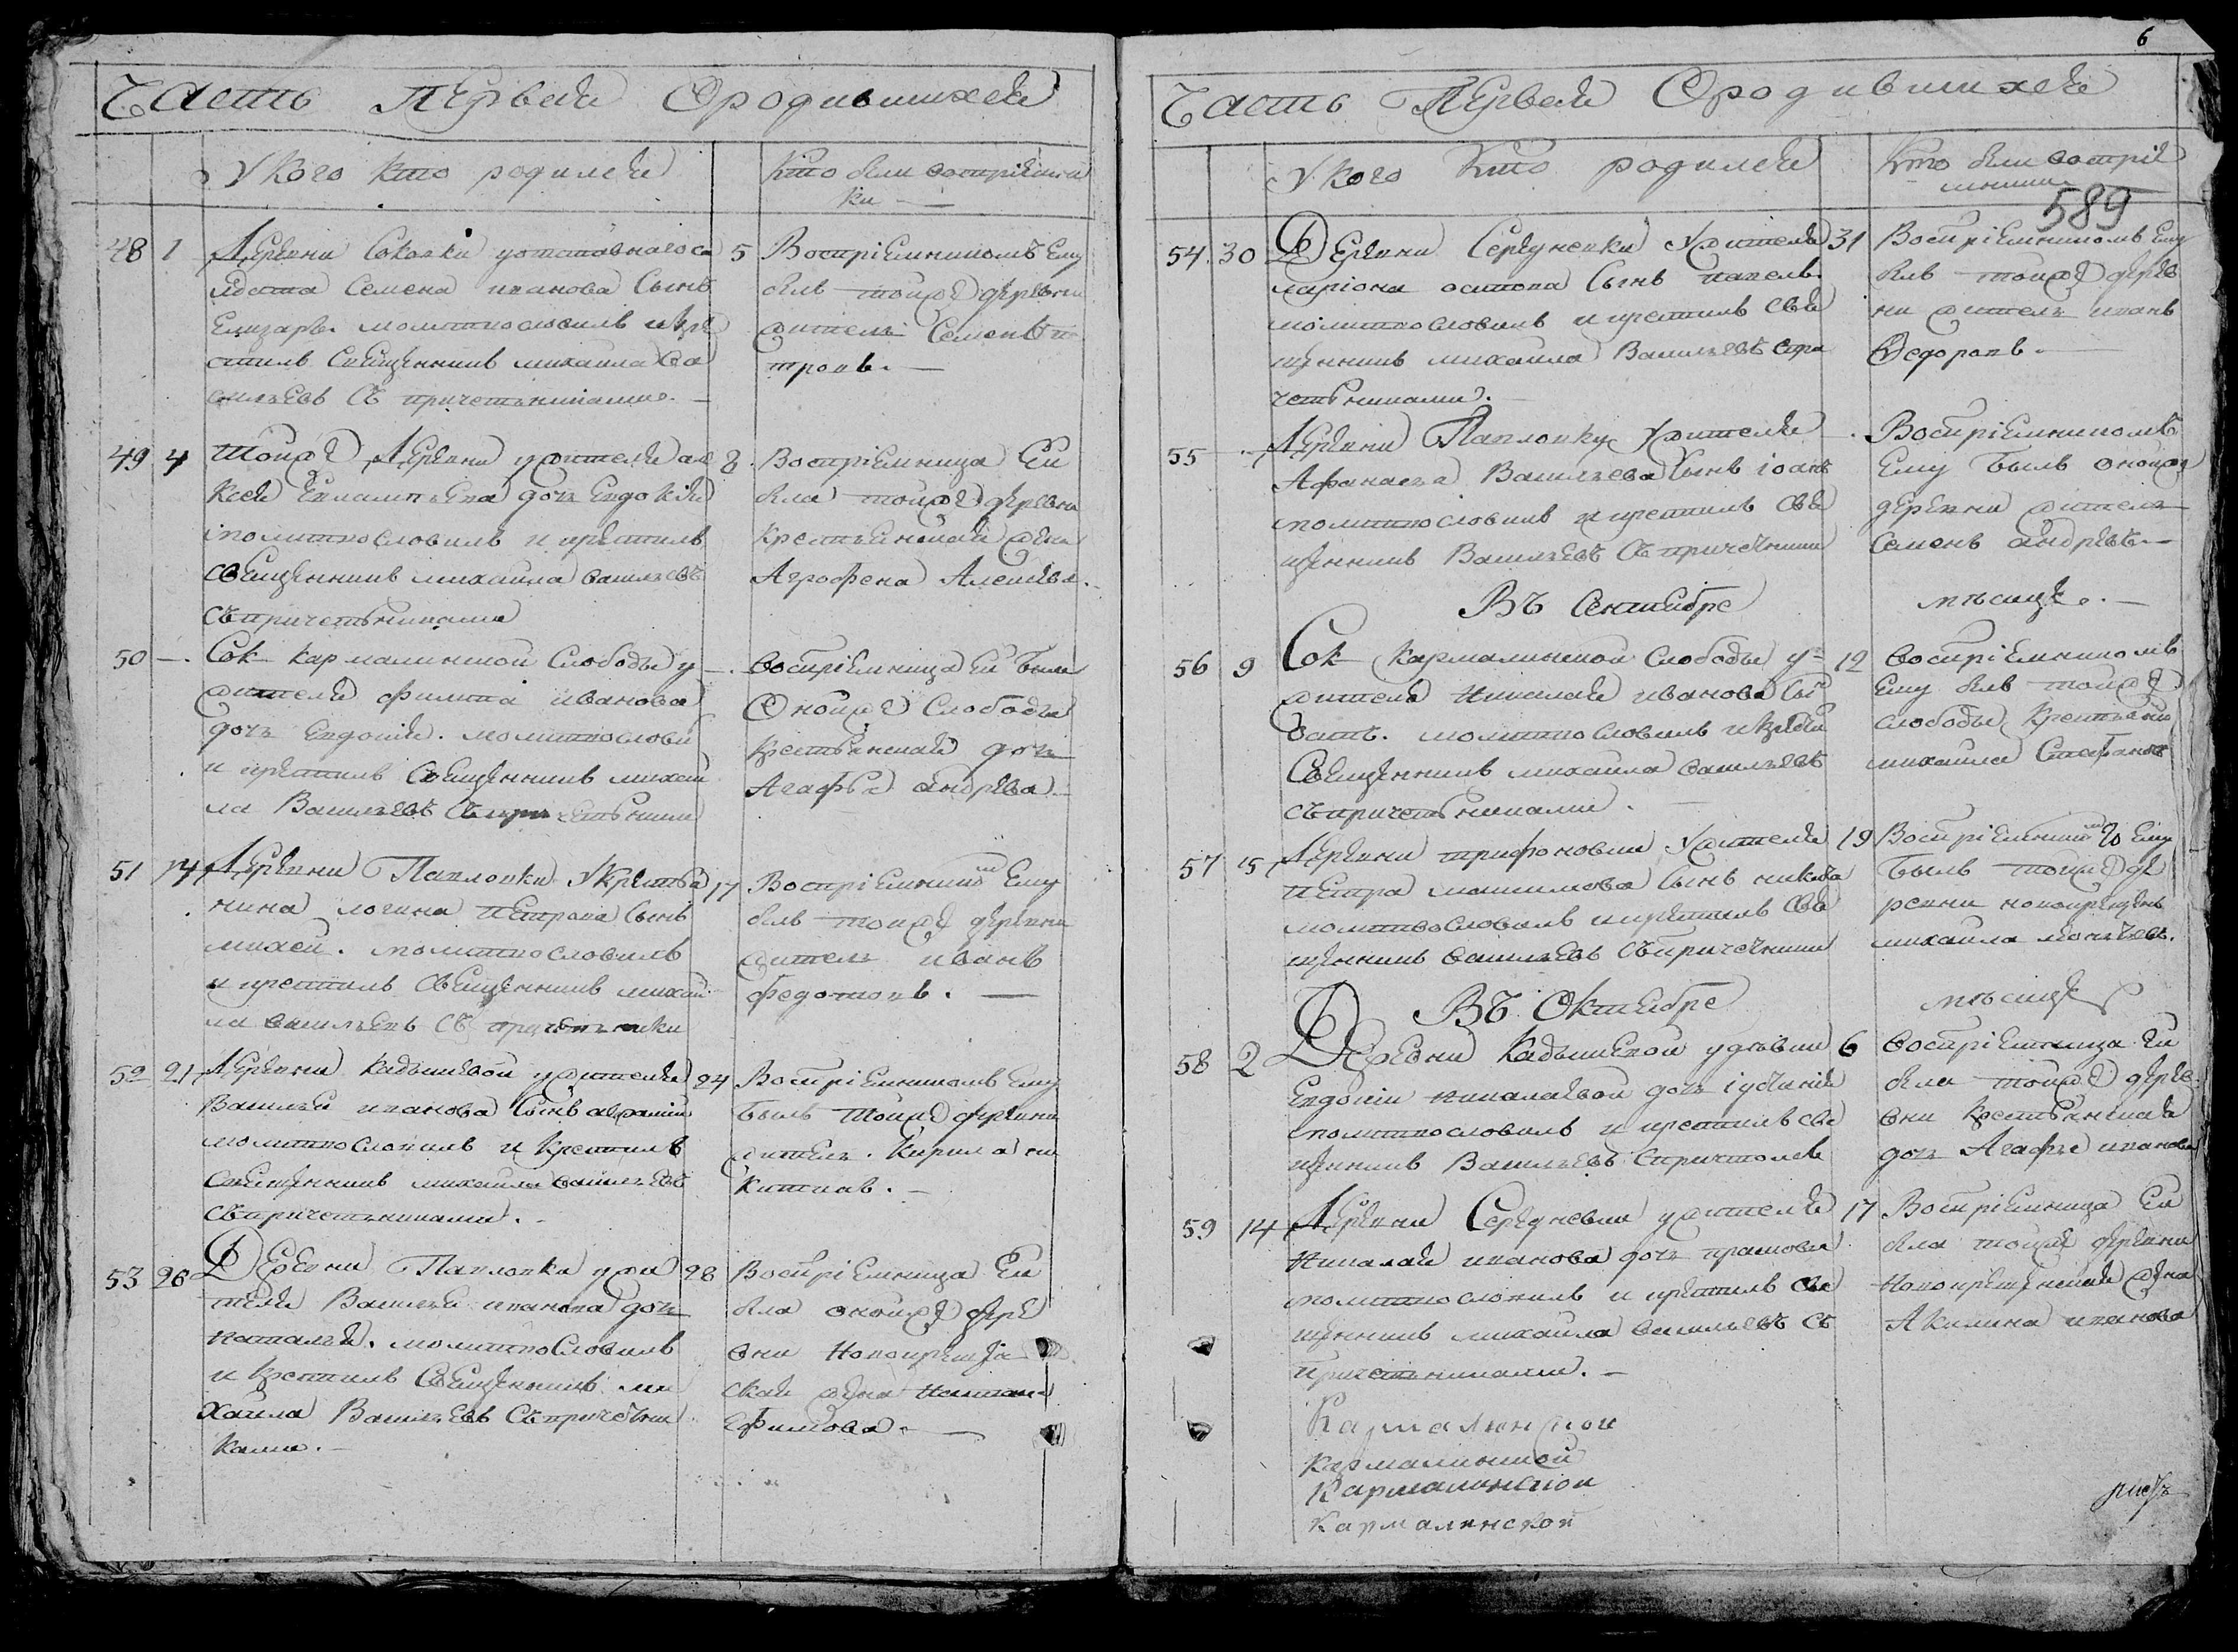 Часть Первая Ородившихся
Укого кто родился
Кто были воспріемни
ки
48 1 Деревни Соколки уотставнагосо
лдата Семена иванова Сынъ
Елизаръ. молитвословилъ икре
стилъ Священникъ михаила Ва
сильевъ Съ причетниками.
5 Воспріемникомъ Ему
былъ тойже деревни
житель Семенъ пе
тровъ.
49 4 Тойже Деревни ужителя але
ксея Евлампьева дочь Евдокія
молитвословилъ и крестилъ
священникъ михаила васильевъ
съпричетниками
8 Воспріемница Ей
была тойже деревни
крестьянская жена
Агрофена Алексева.
50 —. Сок кармалинской Слободы у
жителя филипа иванова
дочь Евдокія. молитвослови
и крестилъ Священникъ михаи
ла Васильевъ
—. воспріемница Ей была
Онойже Слободы
крестьянская дочь
Агафья андрева
51 14 Деревни Павловки Укрестья
нина логина Петрова Сынъ
михей. молитвословилъ
и крестилъ Священникъ михаи
ла васильевъ Съ
17 Воспріемник Ему
былъ тойже деревни
житель иванъ
федотовъ.
52 21 Деревни Кадышевой ужителя
Василья иванова Сынъ
молитвословилъ и Крестилъ
Священникъ михаила васильевъ
съпричетниками.
24 Воспріемникомъ Ему
былъ Тойже деревни
житель. Кирила ни
китинъ.
53 26 Деревни Павловки ужи
теля Василья иванова дочь
наталья. молитвословилъ
и Крестилъ Священникъ ми
хаила Васильевъ Съпричетни
ками.
28 Воспріемница Ей
была онойже дере
вни Новокреще
ская жена
Ефимова.
6
Часть Первая Ородившихся
Укого Кто родился
Кто были воспріе
мники
589
54. 30 Деревни Середневки Ужителя
ларіона осипова Сынъ павелъ
молитвословилъ и крестилъ Свя
щенникъ михаила Васильевъ спри
четниками.
31 Воспріемникомъ Ему
былъ тойже дерев
ни житель иванъ
Федоровъ.
55 Деревни Павловки Ужителя
Афанасья Васильева Сынъ іоанъ
молитвословилъ и крестилъ Свя
щенникъ Васильевъ Съпричетники
Воспріемникомъ
Ему былъ онойже
деревни житель
Семенъ андревъ.
Въ Сентябре мѣсяце.
56 9 Сок Кармалинской Слободы у
жителя николая иванова Сы
молитвословилъ
Священникъ михаила васильевъ
съпричетниками.
12 Воспріемникомъ
Ему былъ тойже
слободы Крестьянин
михаила Стефановъ
57 15 Деревни трифоновки Ужителя
петра максимова Сынъ никита
молитвословилъ и крестилъ Свя
щенникъ васильевъ Съпричетники
19 Воспріемник Ему
былъ тойже де
ревни новокрещенъ
михаила
Въ Октябре мѣсяце
58 2 Деревни Кадышевой удѣвки
Евдокіи николаевой дочь іустинія
молитвословилъ и крестилъ свя
щенникъ Васильевъ
6 воспріемница Ей
была тойже дере
вни крестьянская
дочь Агафья иванова
59 14 Деревни Середневки ужителя
Николая иванова дочь прасковья
молитвословилъ и крестилъ Свя
щенникъ михаила васильевъ Съ
причетниками.
17 Воспріемница Ей
была тойже деревни
Новокрещенская жена
Акилина иванова
Кармалинской
кармалинской
Кармалинской
Кармалинской